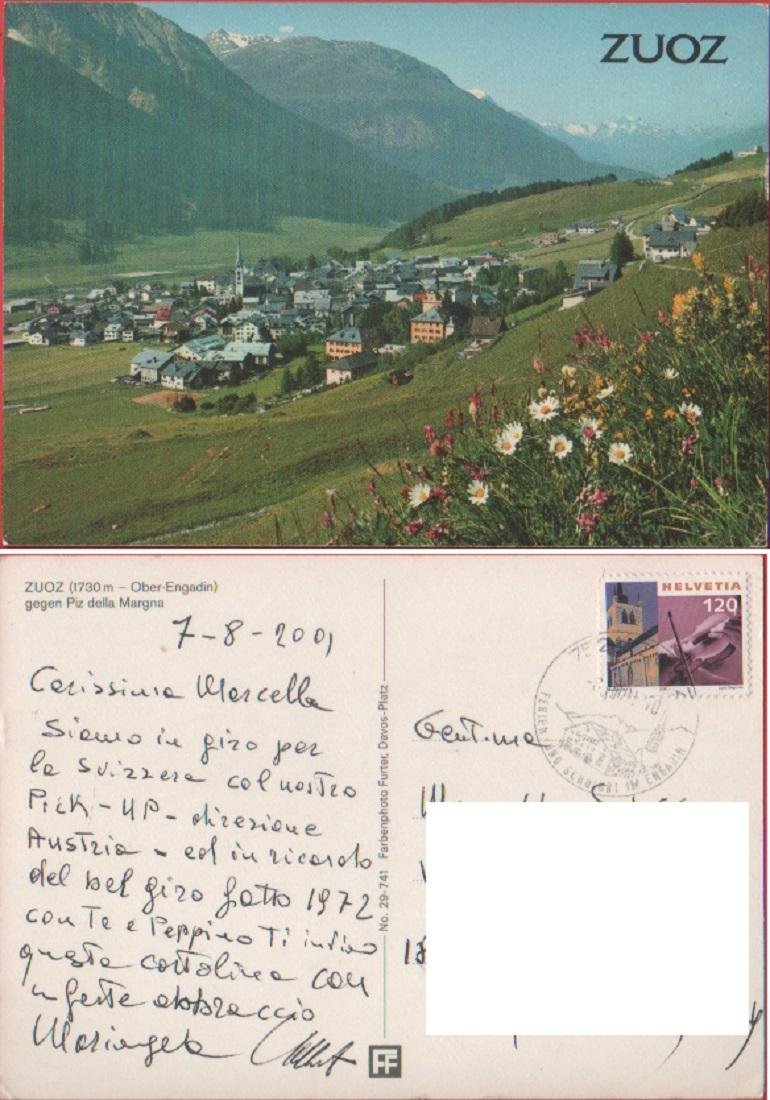 ZUOZ
ZUOZ (1730 m – Ober-Engadin)
gegen Piz della Margna
7-8-2001
Carissima Marcella
Siamo in giro per
la Svizzera col nostro
Pick-UP - direzione
Austria - ed in ricordo
del bel giro fatto 1972
con Te e Peppino Ti invio
questa cartolina con
un forte abbraccio
Mariangela
No. 29-741 Farbenphoto Furter, Davos-Platz
FF
HELVETIA
120
FERIEN UND SPORT IM ENGADIN
Gent.ma